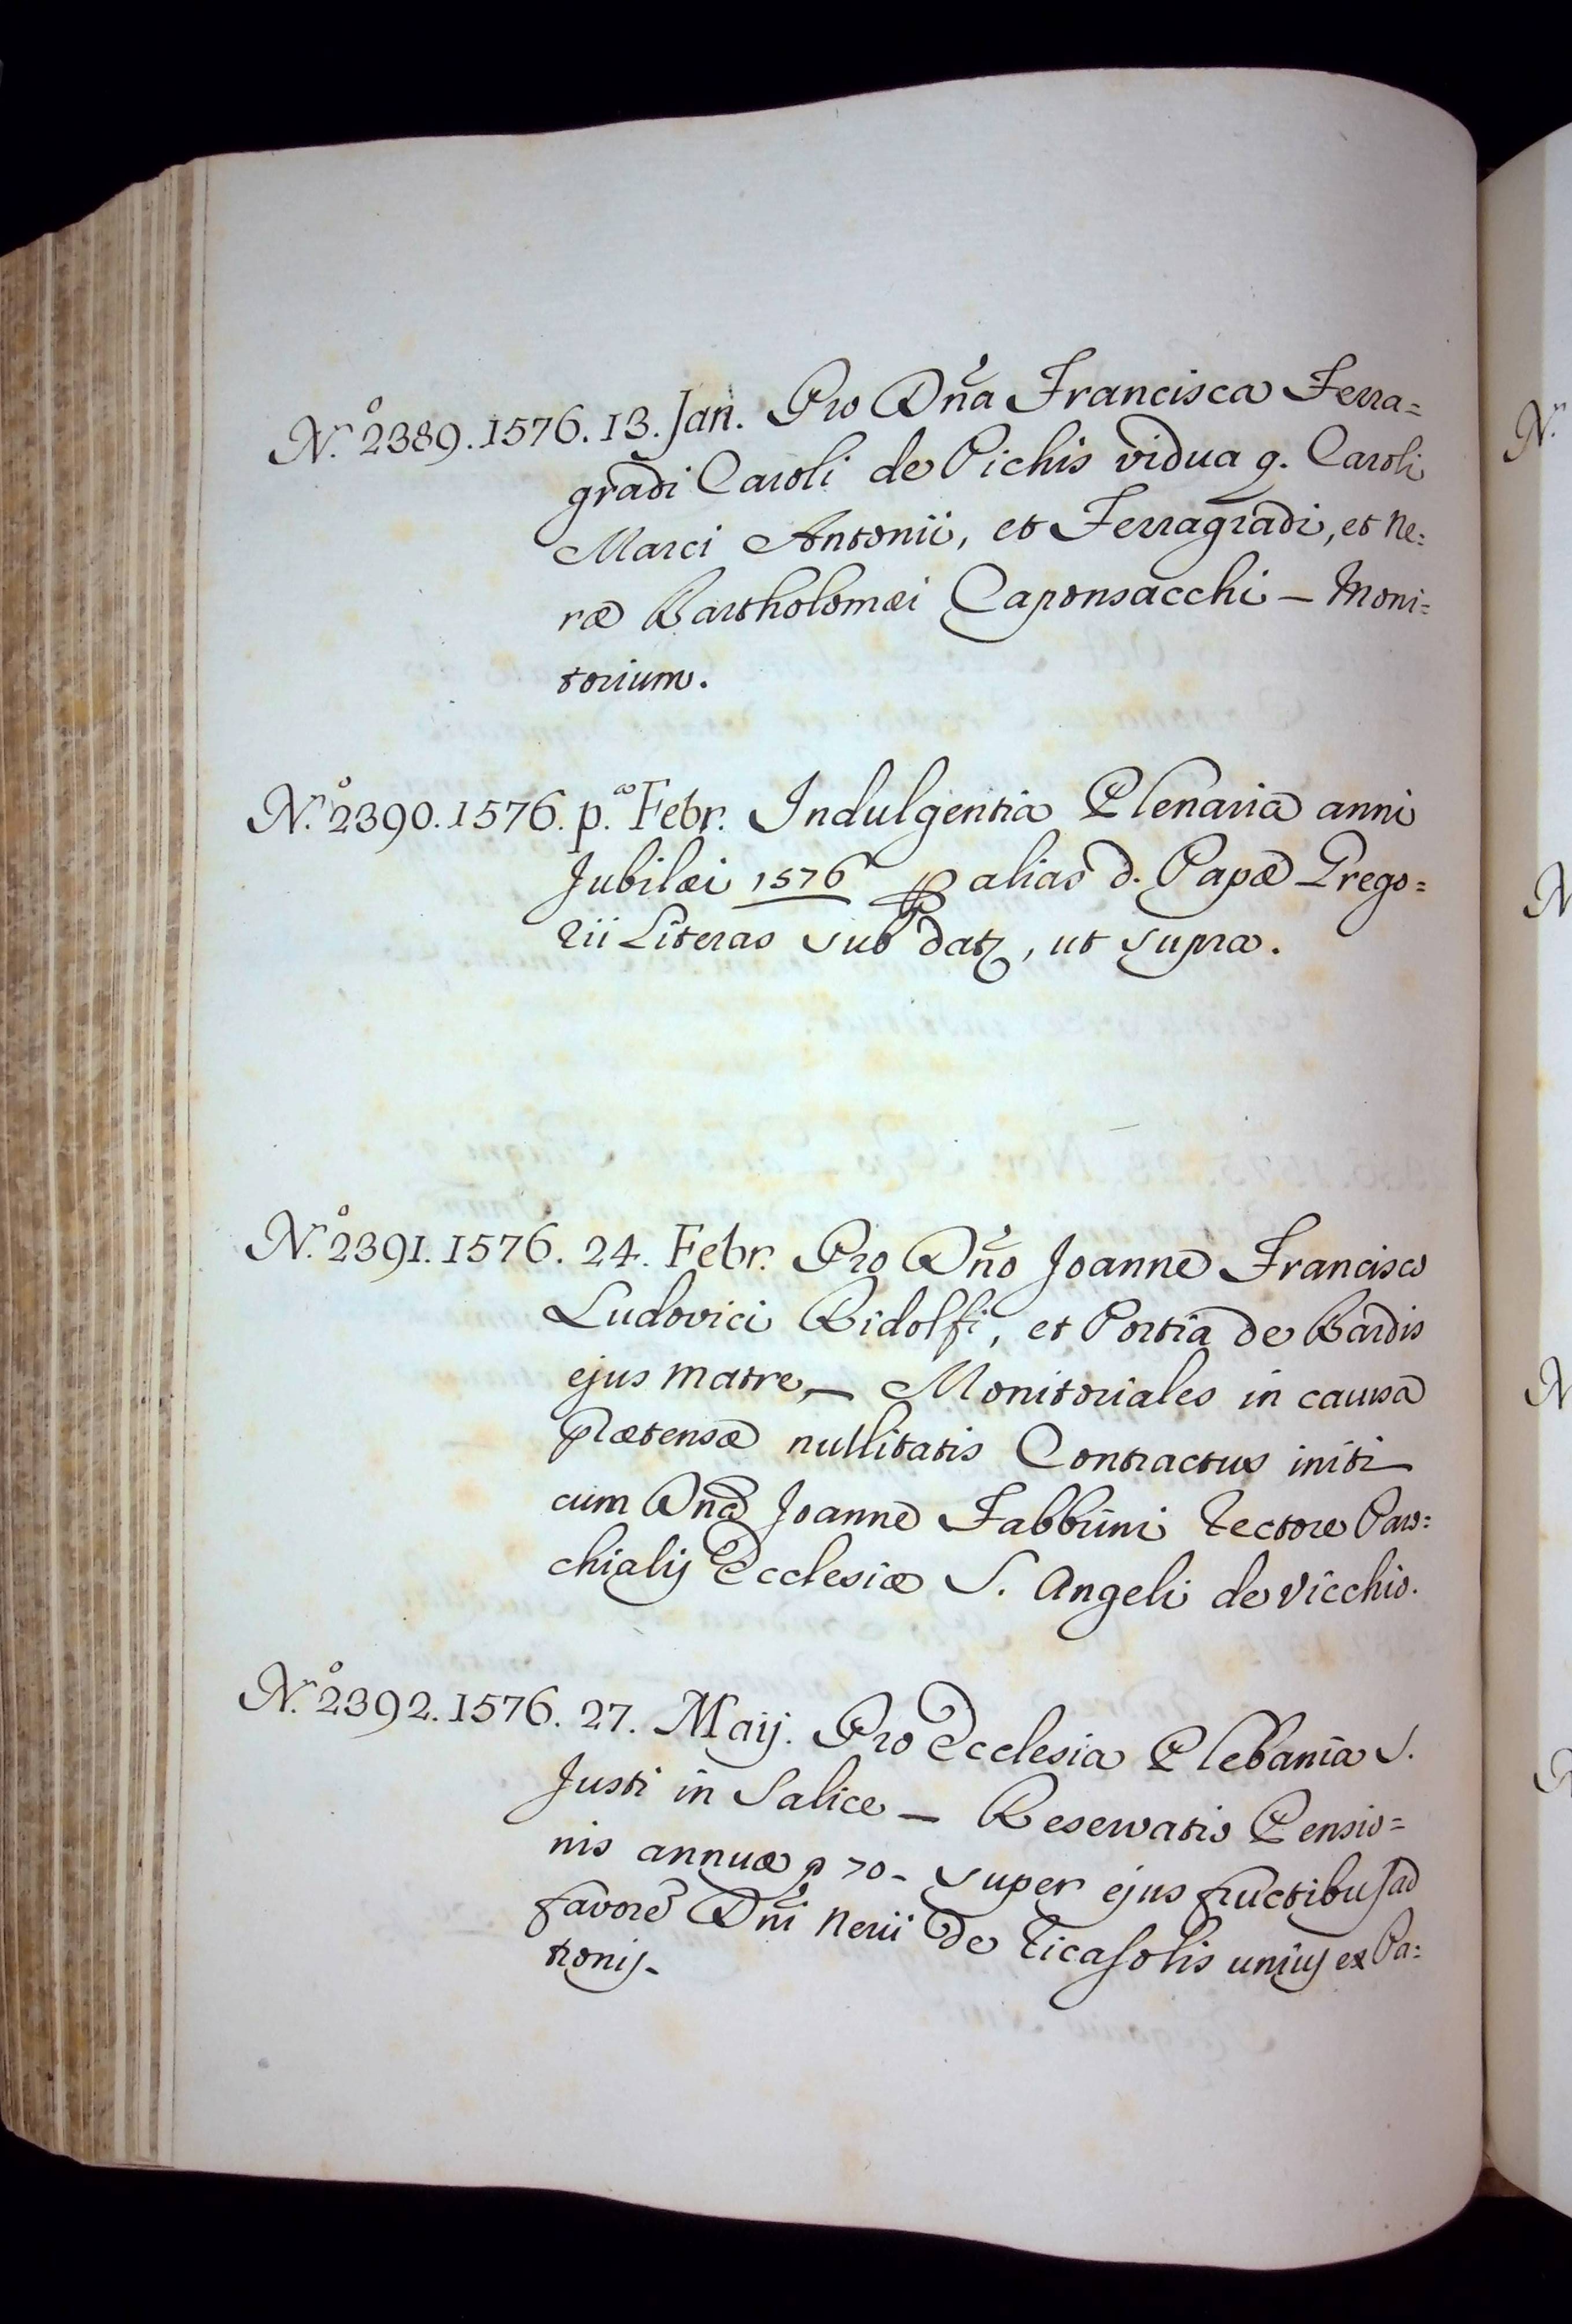 N.º 2389. 1576. 13. Jan. Pro Dña Francisca Ferra=
gradi Caroli de Pichis vidua q. Caroli
Marci Antonii, et Ferragradi, et Ne=
ræ Bartholomæi Caponsacchi — Moni=
torium.
N.º 2390. 1576. p.ª Febr. Indulgentia Plenaria anni
Jubilæi 1576 alias d. Papæ Grego=
rii Literas sub datz, ut supra.
N.º 2391. 1576. 24. Febr. Pro Dño Joanne Francisco
Ludovici Ridolfi, et Portia de Bardis
ejus Matre, — Monitoriales in causa
prætensæ nullitatis Contractus initi
cum Dno Joanne Fabbrini Rectore Paro=
chialis Ecclesiæ S. Angeli de Vicchio.
N.º 2392. 1576. 27. Maij. Pro Ecclesia Plebania S.
Justi in Salice — Reservatio Pensio=
nis annuæ 70 - super ejus fructibus ad
favorē Dñi Nerii de Ricasolis unius ex Pa=
tronis.
N.
N
N